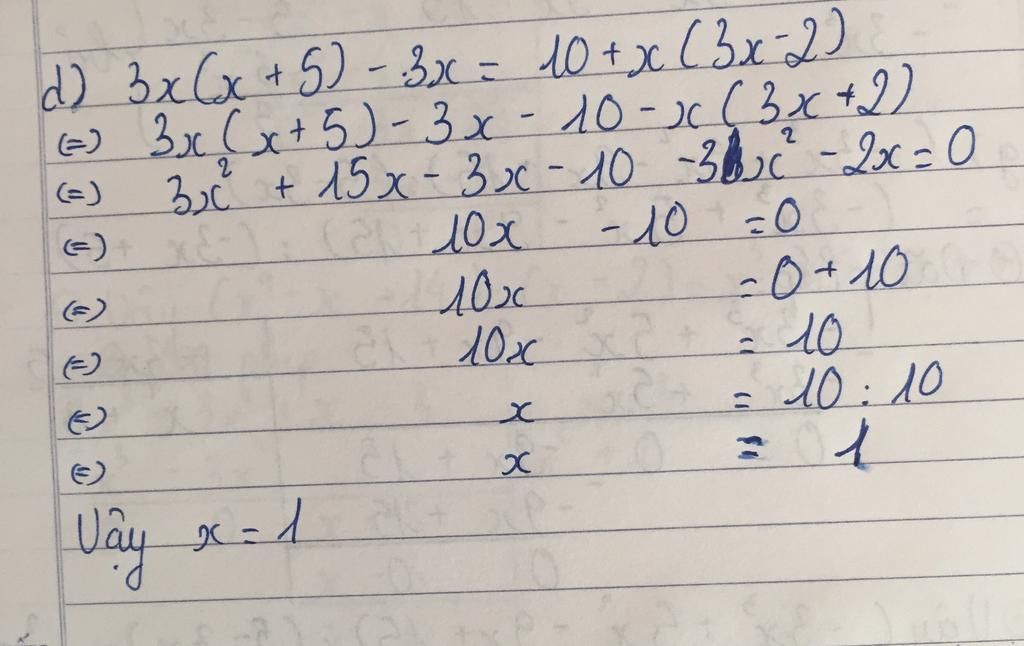 d) 3x(x+5) - 3x = 10 + x(3x-2)
(=) 3x(x+5) - 3x - 10 - x(3x+2)
(=) 3x² + 15x - 3x - 10 - 3x² - 2x = 0
(=) 10x - 10 = 0
(=) 10x = 0 + 10
(=) 10x = 10
(=) x = 10 : 10
(=) x = 1
Vậy x = 1